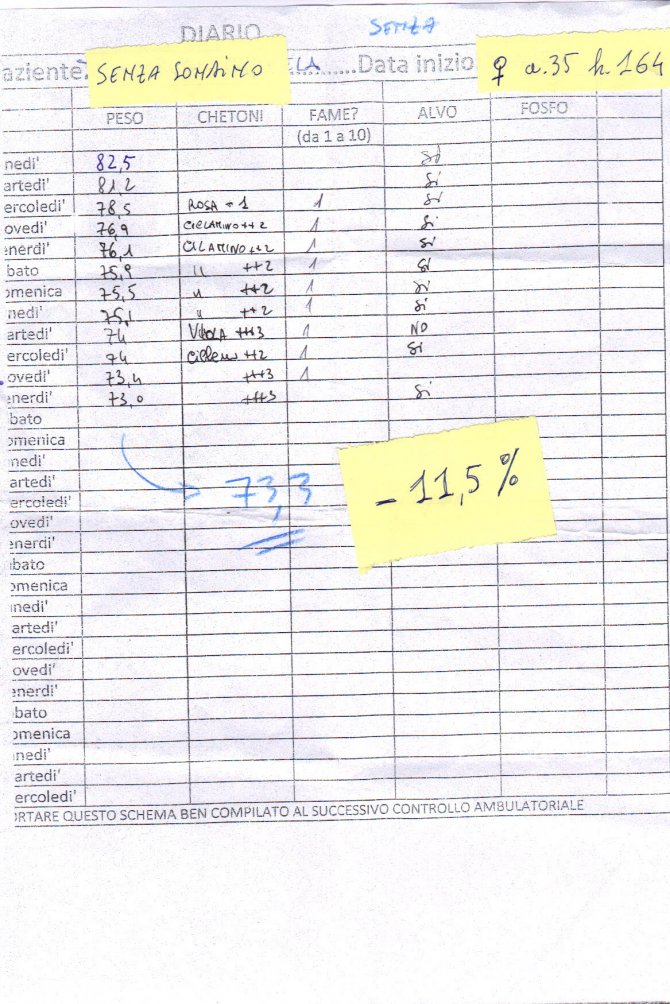 DIARIO SENZA
aziente: SENZA SONDINO ELA......Data inizio ♀ a.35 h. 164
PESO CHETONI FAME? ALVO FOSFO
(da 1 a 10)
nedi' 82,5 SI
artedi' 81,2 SI
ercoledi' 78,5 ROSA + 1 1 SI
ovedi' 76,9 CICLAMINO ++2 1 SI
enerdi' 76,1 CICLAMINO ++2 1 SI
bato 75,9 " ++2 1 SI
omenica 75,5 " ++2 1 SI
nedi' 75,1 " ++2 1 SI
artedi' 74 VIOLA +++3 1 NO
ercoledi' 74 ++2 1 SI
ovedi' 73,4 +++3 1
enerdi' 73,0 +++3 SI
bato
omenica
nedi'
artedi' 73,3 - 11,5 %
ercoledi'
ovedi'
enerdi'
bato
omenica
nedi'
artedi'
ercoledi'
ovedi'
enerdi'
bato
omenica
nedi'
artedi'
ercoledi'
ORTARE QUESTO SCHEMA BEN COMPILATO AL SUCCESSIVO CONTROLLO AMBULATORIALE